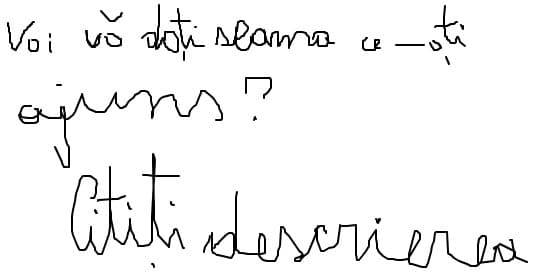 Voi vă dați seama ce-ați
ajuns?
Citiți descrierea